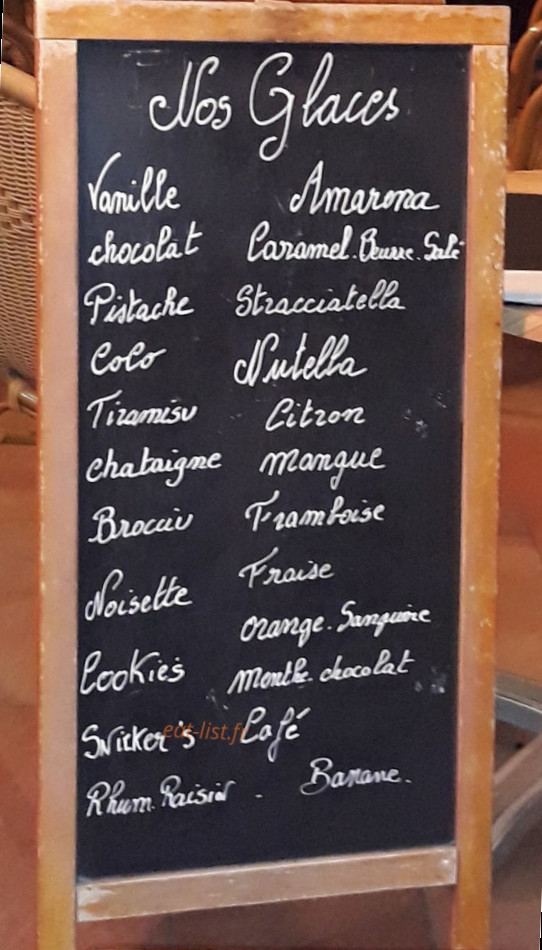 Nos Glaces
Vanille Amarena
chocolat Caramel.Beurre.Salé
Pistache Stracciatella
Coco Nutella
Tiramisu Citron
chataigne mangue
Brocciu Framboise
Noisette Fraise
orange.Sanguine
Cookies menthe.chocolat
Snicker's Café
eat-list.fr
Rhum.Raisin - Banane.